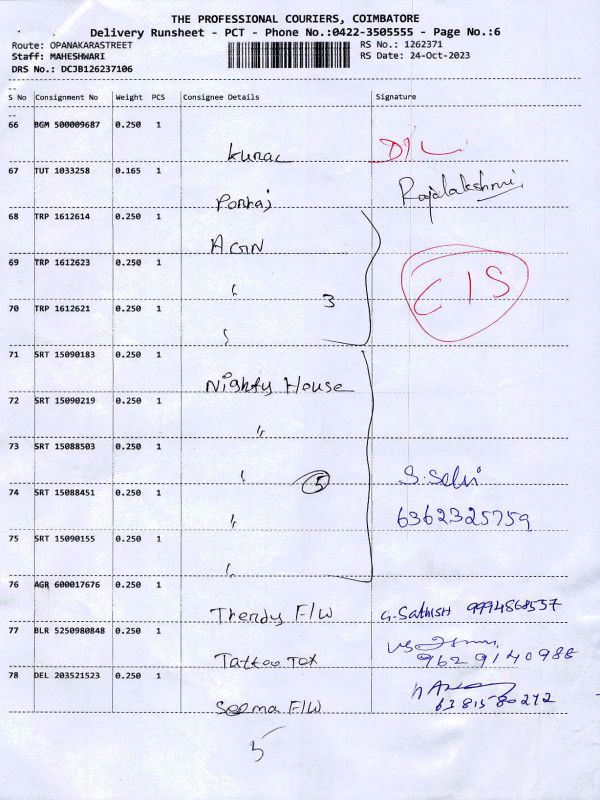 THE PROFESSIONAL COURIERS, COIMBATORE
Delivery Runsheet - PCT - Phone No.:0422-3505555 - Page No.:6
Route: OPANAKARASTREET
RS No.: 1262371
Staff: MAHESHWARI
RS Date: 24-Oct-2023
DRS No.: DCJB126237106
S No Consignment No Weight PCS Consignee Details Signature
66 BGM 500009687 0.250 1
67 TUT 1033258 0.165 1
Rajalakshmi
68 TRP 1612614 0.250 1
AGN
69 TRP 1612623 0.250 1
" 3 CIS
70 TRP 1612621 0.250 1
"
71 SRT 15090183 0.250 1
Nighty House
72 SRT 15090219 0.250 1
"
73 SRT 15088503 0.250 1
" 5 S. Selvi
74 SRT 15088451 0.250 1
" 6362325759
75 SRT 15090155 0.250 1
"
76 AGR 600017676 0.250 1
Thendy F/W G. Sathish 9994868557
77 BLR 5250980848 0.250 1
Tattoo Tex 9629140988
78 DEL 203521523 0.250 1
Seema F/W 6381580272
5